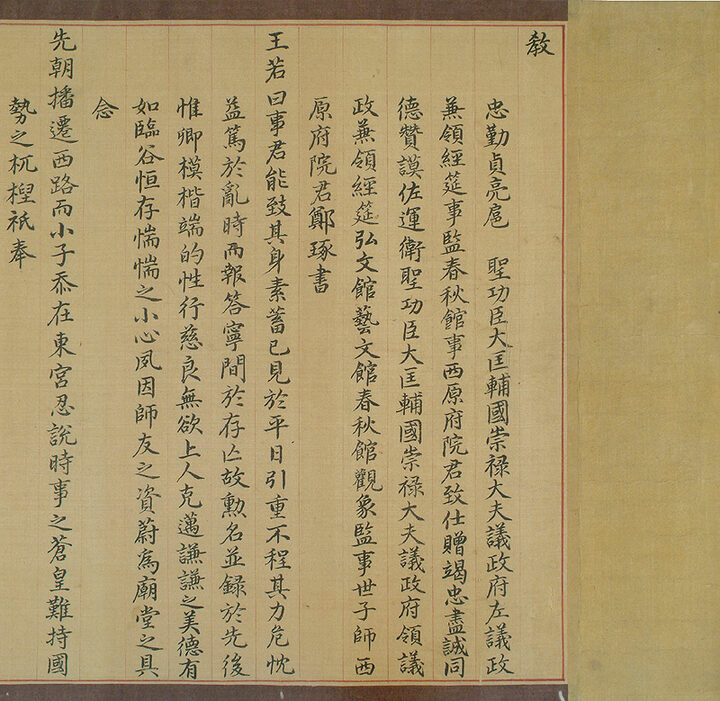 教
忠勤貞亮扈 聖功臣大匡輔國崇禄大夫議政府左議政
兼領經筵事監春秋館事西原府院君致仕贈竭忠盡誠同
德贊謨佐運衛聖功臣大匡輔國崇禄大夫議政府領議
政兼領經筵弘文館藝文館春秋館觀象監事世子師西
原府院君鄭琢書
王若曰事君能致其身素蓄已見於平日引重不程其力危忱
益篤於亂時而報答寧間於存亡故勳名並録於先後
惟卿模楷端的性行慈良無欲上人克邁謙謙之美德有
如臨谷恒存惴惴之小心夙因師友之資蔚為廟堂之具
念
先朝播遷西路而小子忝在東宮忍說時事之蒼皇難持國
勢之杌棿祇奉